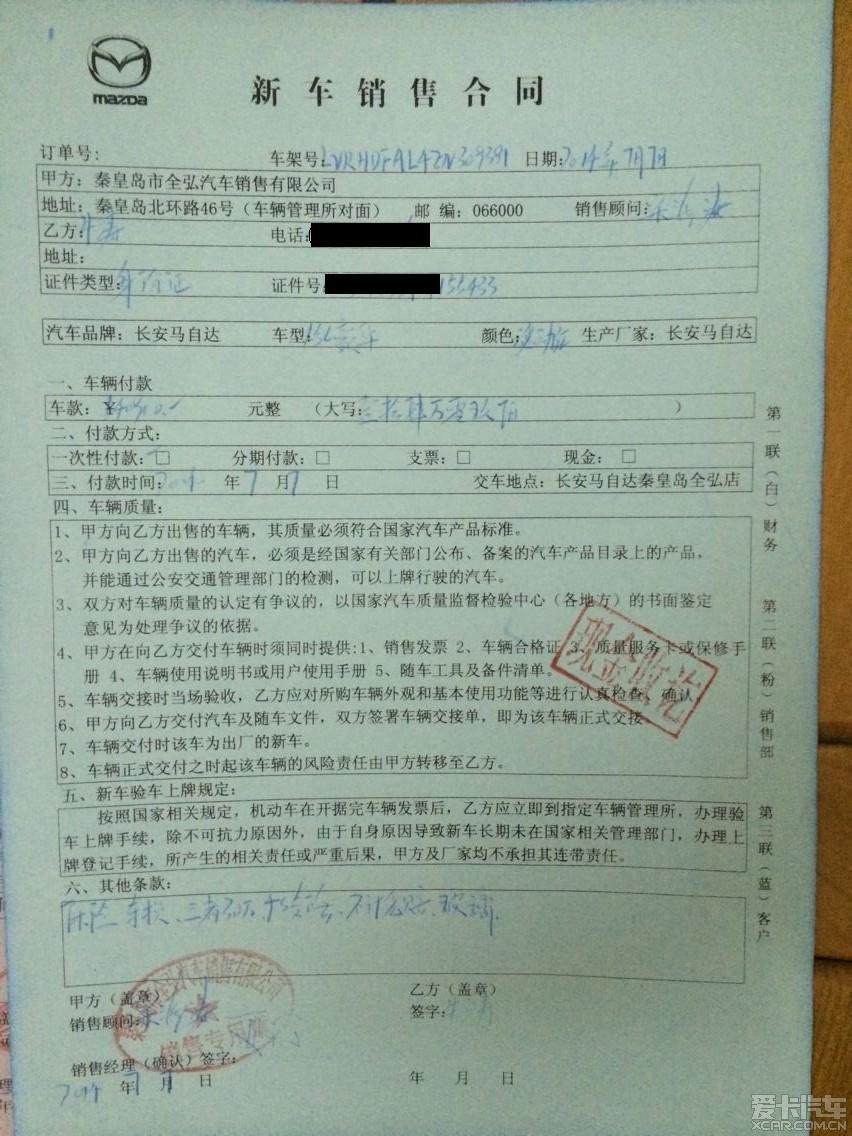 mazda
新车销售合同
订单号: 车架号: 日期: 2014年7月7日
甲方：秦皇岛市全弘汽车销售有限公司
地址：秦皇岛北环路46号（车辆管理所对面） 邮 编：066000 销售顾问：
乙方： 电话：
地址：
证件类型：身份证 证件号： 155433
汽车品牌：长安马自达 车型： 豪华 颜色： 生产厂家：长安马自达
一、车辆付款
车款：￥ 元整 （大写：壹拾肆万零玖佰 ）
二、付款方式：
一次性付款：□ 分期付款：□ 支票：□ 现金：□
三、付款时间：2014 年 7 月 7 日 交车地点：长安马自达秦皇岛全弘店
四、车辆质量：
1、甲方向乙方出售的车辆，其质量必须符合国家汽车产品标准。
2、甲方向乙方出售的汽车，必须是经国家有关部门公布、备案的汽车产品目录上的产品，
并能通过公安交通管理部门的检测，可以上牌行驶的汽车。
3、双方对车辆质量的认定有争议的，以国家汽车质量监督检验中心（各地方）的书面鉴定
意见为处理争议的依据。
4、甲方在向乙方交付车辆时须同时提供:1、销售发票 2、车辆合格证 3、质量服务卡或保修手
册 4、车辆使用说明书或用户使用手册 5、随车工具及备件清单。
5、车辆交接时当场验收，乙方应对所购车辆外观和基本使用功能等进行认真检查、确认
6、甲方向乙方交付汽车及随车文件，双方签署车辆交接单，即为该车辆正式交接。
7、车辆交付时该车为出厂的新车。
8、车辆正式交付之时起该车辆的风险责任由甲方转移至乙方。
现金收讫
五、新车验车上牌规定：
按照国家相关规定，机动车在开据完车辆发票后，乙方应立即到指定车辆管理所，办理验
车上牌手续，除不可抗力原因外，由于自身原因导致新车长期未在国家相关管理部门，办理上
牌登记手续，所产生的相关责任或严重后果，甲方及厂家均不承担其连带责任。
六、其他条款：
不计免赔、玻璃
甲方（盖章） 乙方（盖章）
销售顾问： 签字：
销售专用章
销售经理（确认）签字：
2014 年 7 月 7 日 年 月 日
第一联（白）财务
第二联（粉）销售部
第三联（蓝）客户
爱卡汽车
XCAR.COM.CN